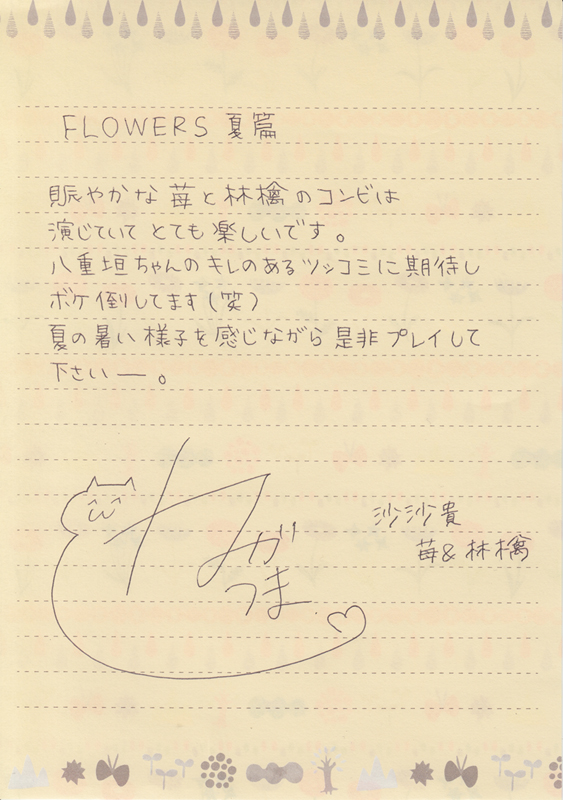 FLOWERS 夏篇
賑やかな苺と林檎のコンビは
演じていてとても楽しいです。
八重垣ちゃんのキレのあるツッコミに期待し
ボケ倒してます(笑)
夏の暑い様子を感じながら是非プレイして
下さいー。
沙沙貴
苺&林檎
がつま